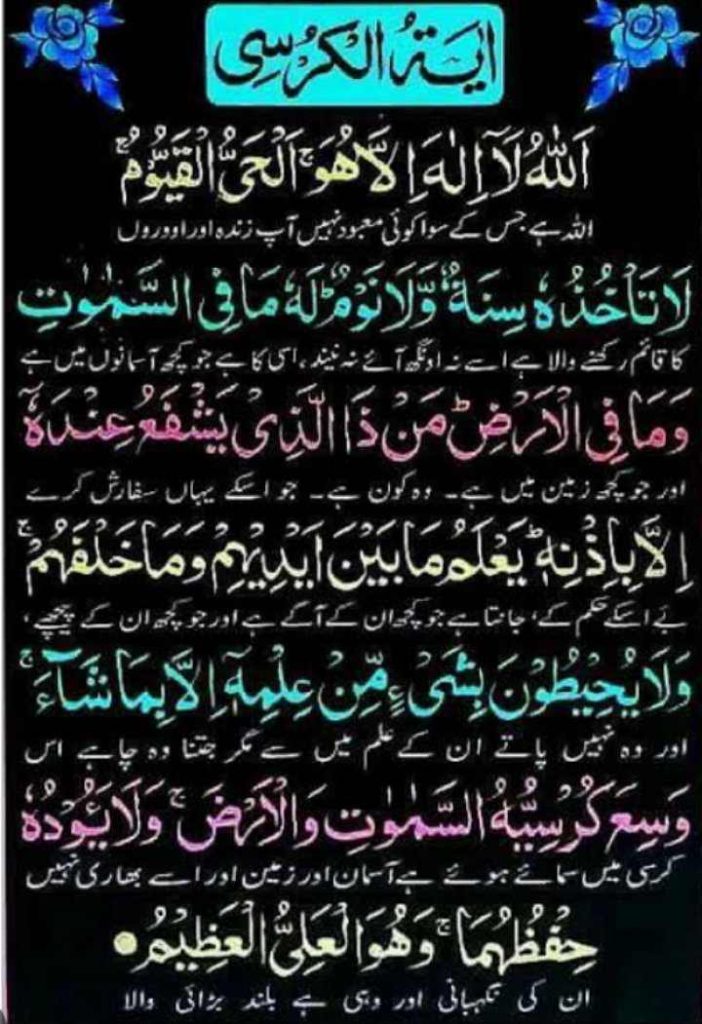 اٰیَۃُ الْکُرْسِی
اَللّٰهُ لَآ اِلٰهَ اِلَّا هُوَ ۚ اَلْحَیُّ الْقَیُّوْمُ ۚ
اللہ ہے جس کے سوا کوئی معبود نہیں آپ زندہ اور اوروں
لَا تَاْخُذُهٗ سِنَةٌ وَّلَا نَوْمٌ ؕ لَهٗ مَا فِی السَّمٰوٰتِ
کا قائم رکھنے والا ہے اسے نہ اونگھ آئے نہ نیند، اسی کا ہے جو کچھ آسمانوں میں ہے
وَمَا فِی الْاَرْضِ ؕ مَنْ ذَا الَّذِیْ یَشْفَعُ عِنْدَهٗۤ
اور جو کچھ زمین میں ہے۔ وہ کون ہے۔ جو اسکے یہاں سفارش کرے
اِلَّا بِاِذْنِهٖ ؕ یَعْلَمُ مَا بَیْنَ اَیْدِیْهِمْ وَمَا خَلْفَهُمْ ۚ
بے اسکے حکم کے، جانتا ہے جو کچھ ان کے آگے ہے اور جو کچھ ان کے پیچھے،
وَلَا یُحِیْطُوْنَ بِشَیْءٍ مِّنْ عِلْمِهٖۤ اِلَّا بِمَا شَآءَ ۚ
اور وہ نہیں پاتے ان کے علم میں سے مگر جتنا وہ چاہے اس
وَسِعَ كُرْسِیُّهُ السَّمٰوٰتِ وَالْاَرْضَ ۚ وَلَا یَـُٔوْدُهٗ
کرسی میں سمائے ہوئے ہے آسمان اور زمین اور اسے بھاری نہیں
حِفْظُهُمَا ۚ وَهُوَ الْعَلِیُّ الْعَظِیْمُ ●
ان کی نگہبانی اور وہی ہے بلند بڑائی والا